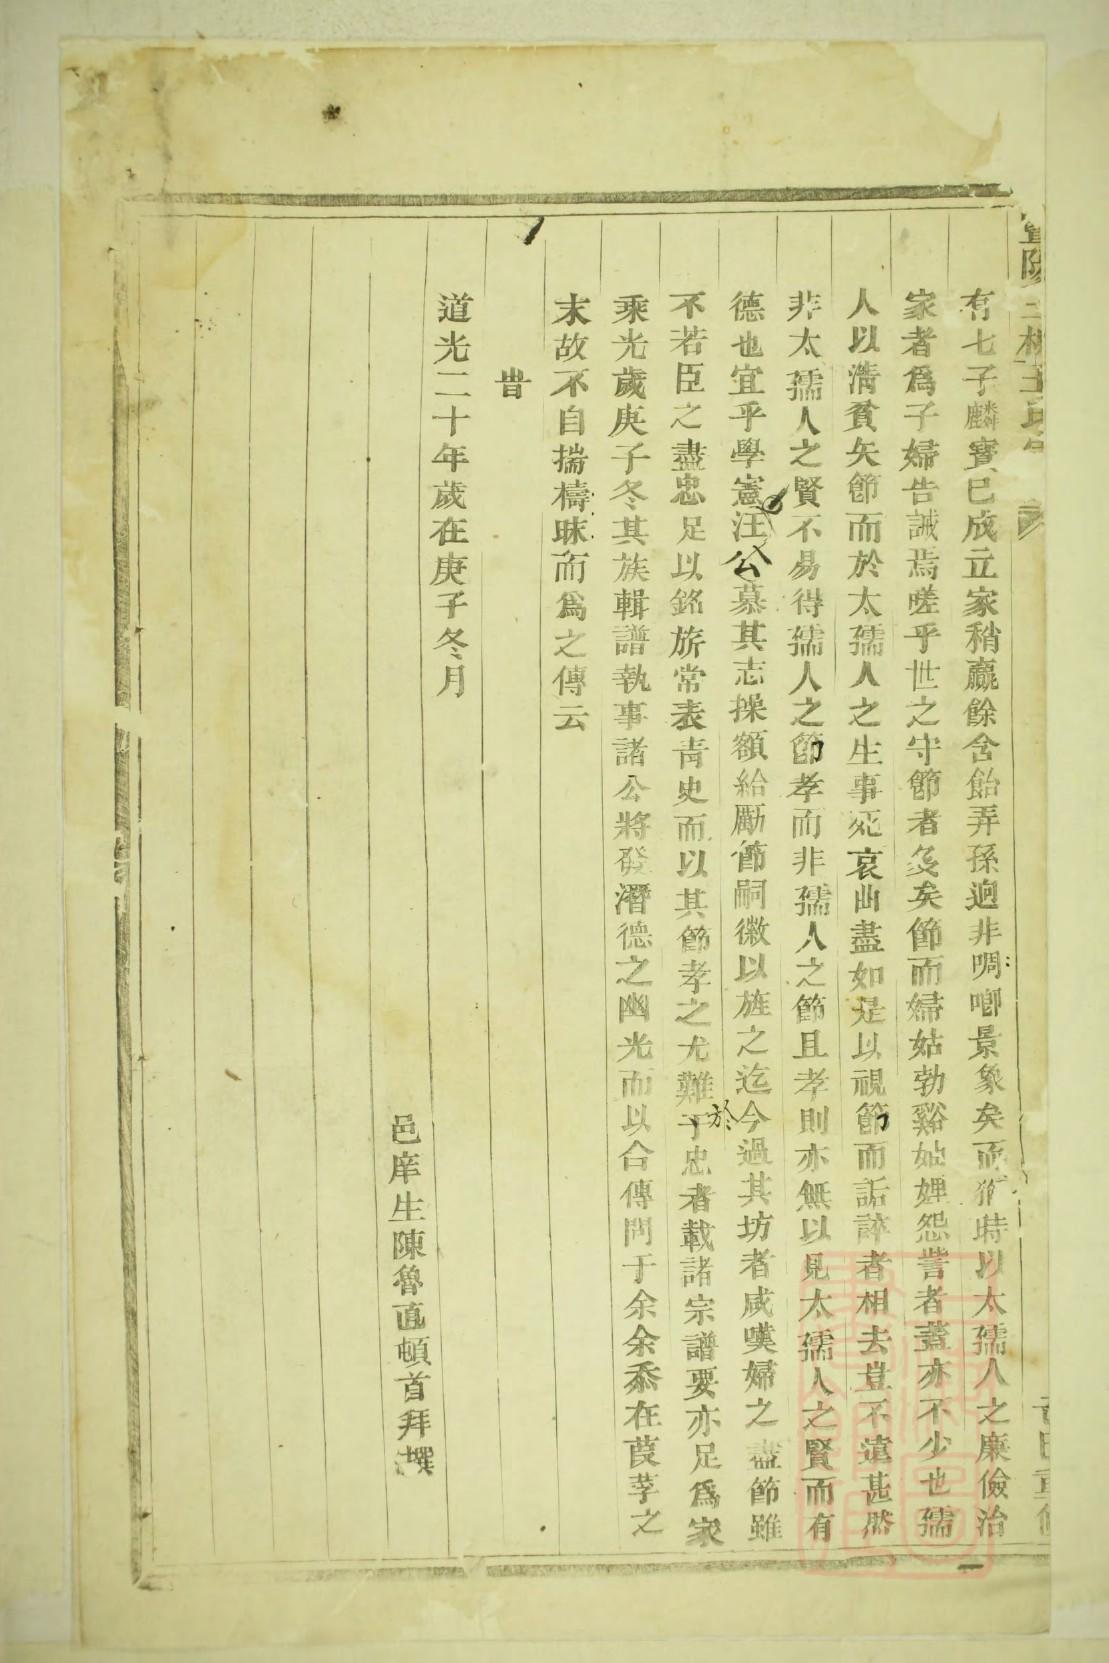 有七子麟寶已成立家稍贏餘含飴弄孫逈非啁啾景象矣而猶時以太孺人之廉儉治
家者爲子婦告誡焉嗟乎世之守節者多矣節而婦姑勃谿妯娌怨讟者蓋亦不少也孺
人以清貧矢節而於太孺人之生事死哀曲盡如是以視節而詬誶者相去豈不遠甚然
非太孺人之賢不易得孺人之節孝而非孺人之節且孝則亦無以見太孺人之賢而有
德也宜乎學憲汪公慕其志操額給勵節嗣徽以旌之迄今過其坊者咸嘆婦之盡節雖
不若臣之盡忠足以銘旂常表青史而以其節孝之尤難于忠者載諸宗譜要亦足爲家
於
乘光歲庚子冬其族輯譜執事諸公將發潛德之幽光而以合傳問于余余忝在葭莩之
末故不自揣檮昧而爲之傳云
旹
道光二十年歲在庚子冬月
邑庠生陳魯直頓首拜撰